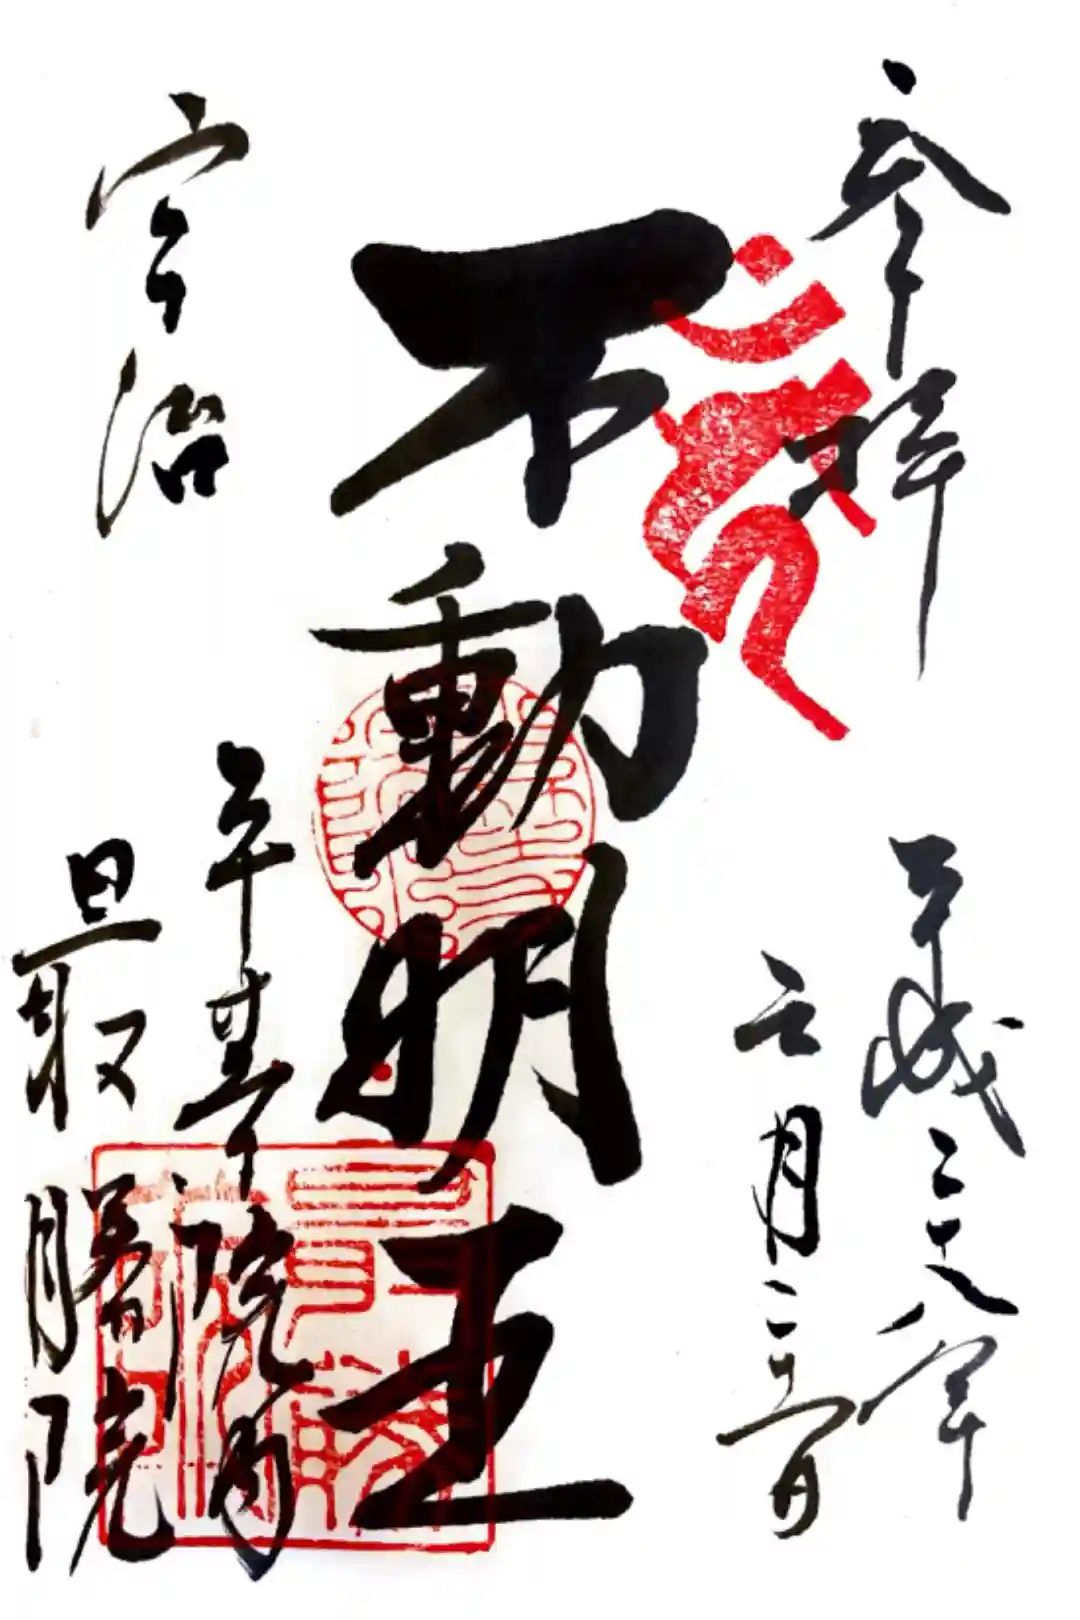 奉拝
平成二十八年
月二十日
不動明王
宇治
平等院内
最勝院